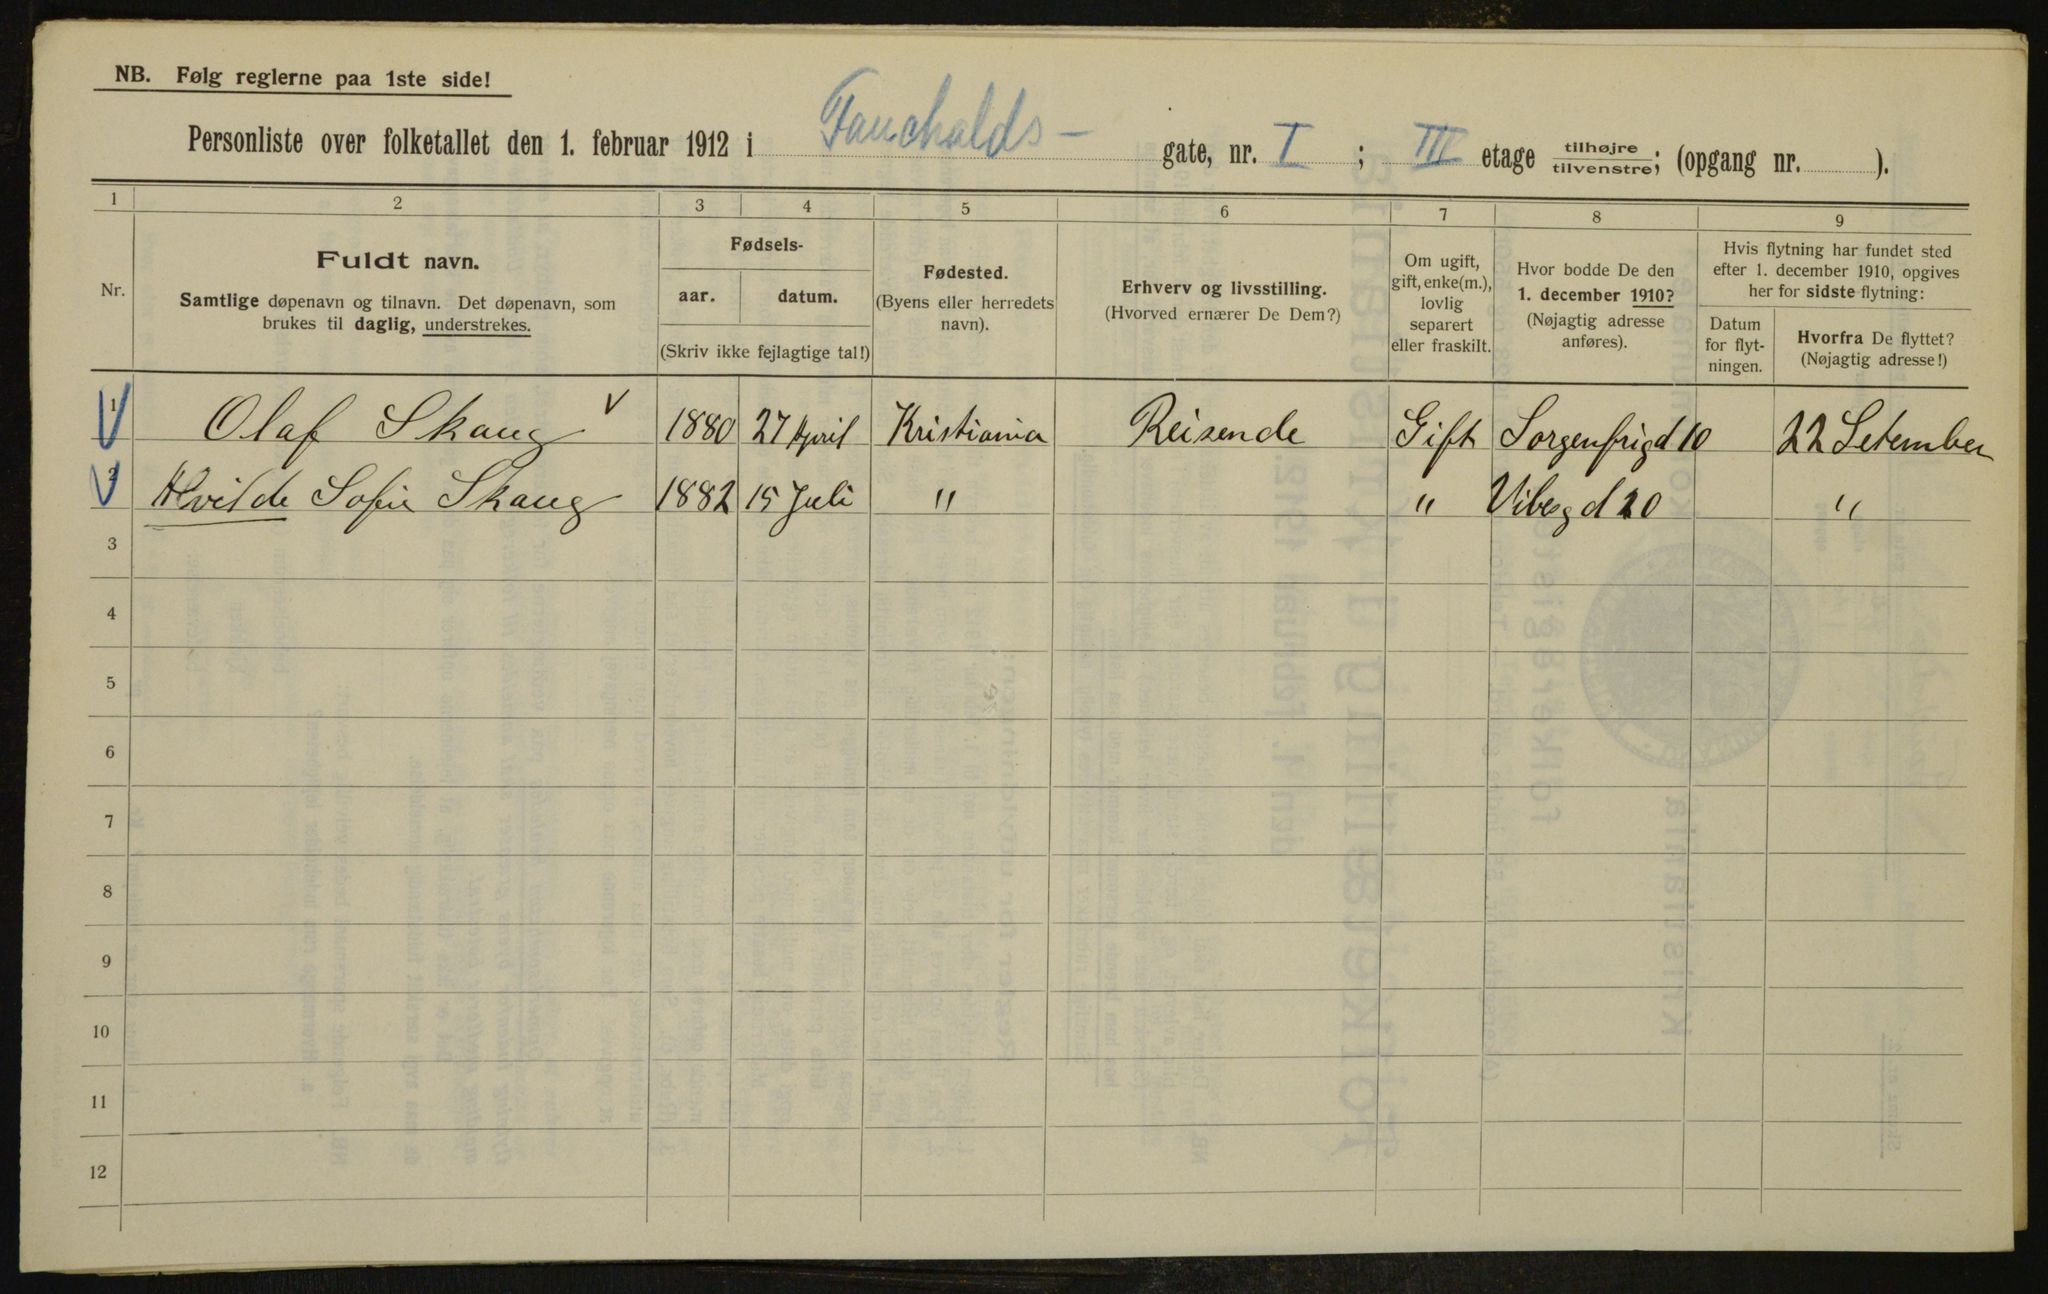 NB. Følg reglerne paa 1ste side!
Personliste over folketallet den 1. februar 1912 i Fauchalds- gate, nr. I ; III etage tilhøjre/tilvenstre; (opgang nr. ).
1 2 3 4 5 6 7 8 9
Nr.
Fuldt navn.
Samtlige døpenavn og tilnavn. Det døpenavn, som
brukes til daglig, understrekes.
Fødsels-
aar. datum.
(Skriv ikke fejlagtige tal!)
Fødested.
(Byens eller herredets
navn).
Erhverv og livsstilling.
(Hvorved ernærer De Dem?)
Om ugift,
gift, enke(m.),
lovlig
separert
eller fraskilt.
Hvor bodde De den
1. december 1910?
(Nøjagtig adresse
anføres).
Hvis flytning har fundet sted
efter 1. december 1910, opgives
her for sidste flytning:
Datum
for flyt-
ningen.
Hvorfra De flyttet?
(Nøjagtig adresse!)
1 Olaf Skaug V 1880 27 April Kristiania Reisende Gift Sorgenfrigd 10 22 Setember
2 Hvilde Sofie Skaug 1882 15 Juli " " Vibesgd 20 "
3
4
5
6
7
8
9
10
11
12